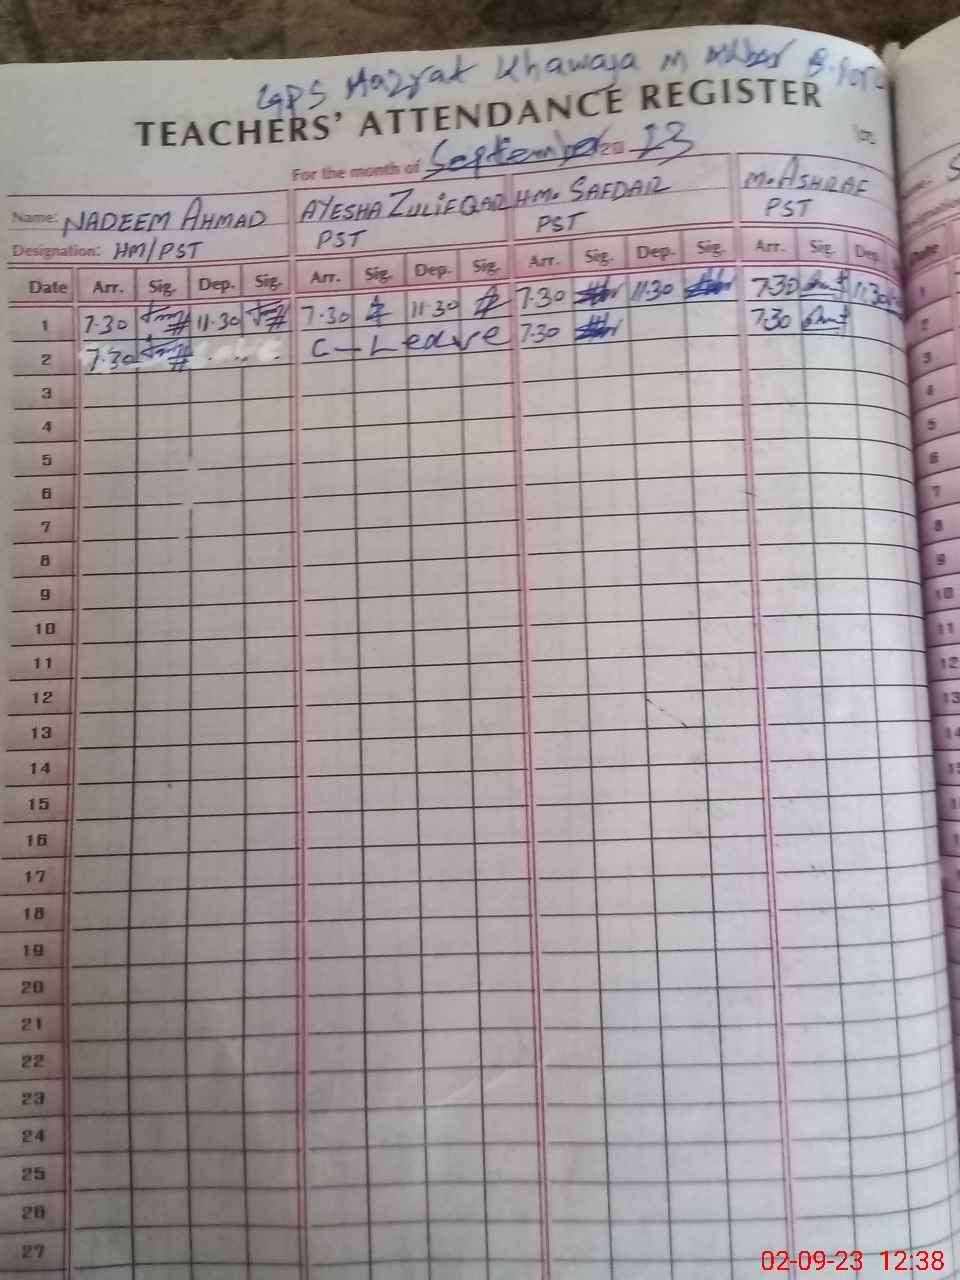 GPS Hazrat Khawaja M
TEACHERS' ATTENDANCE REGISTER
For the month of September 20 23
Name: NADEEM AHMAD AYESHA ZULIFQAR HM. SAFDAR M. ASHRAF
Designation: HM/PST PST PST PST
Date Arr. Sig. Dep. Sig. Arr. Sig. Dep. Sig. Arr. Sig. Dep. Sig. Arr. Sig. Dep.
1 7.30 11.30 7.30 11.30 7.30 11.30 7.30 11.30
2 7.30 C-Leave 7.30 7.30
3
4
5
6
7
8
9
10
11
12
13
14
15
16
17
18
19
20
21
22
23
24
25
26
27
Date
1
2
3
4
5
6
7
8
9
10
11
12
13
14
02-09-23 12:38